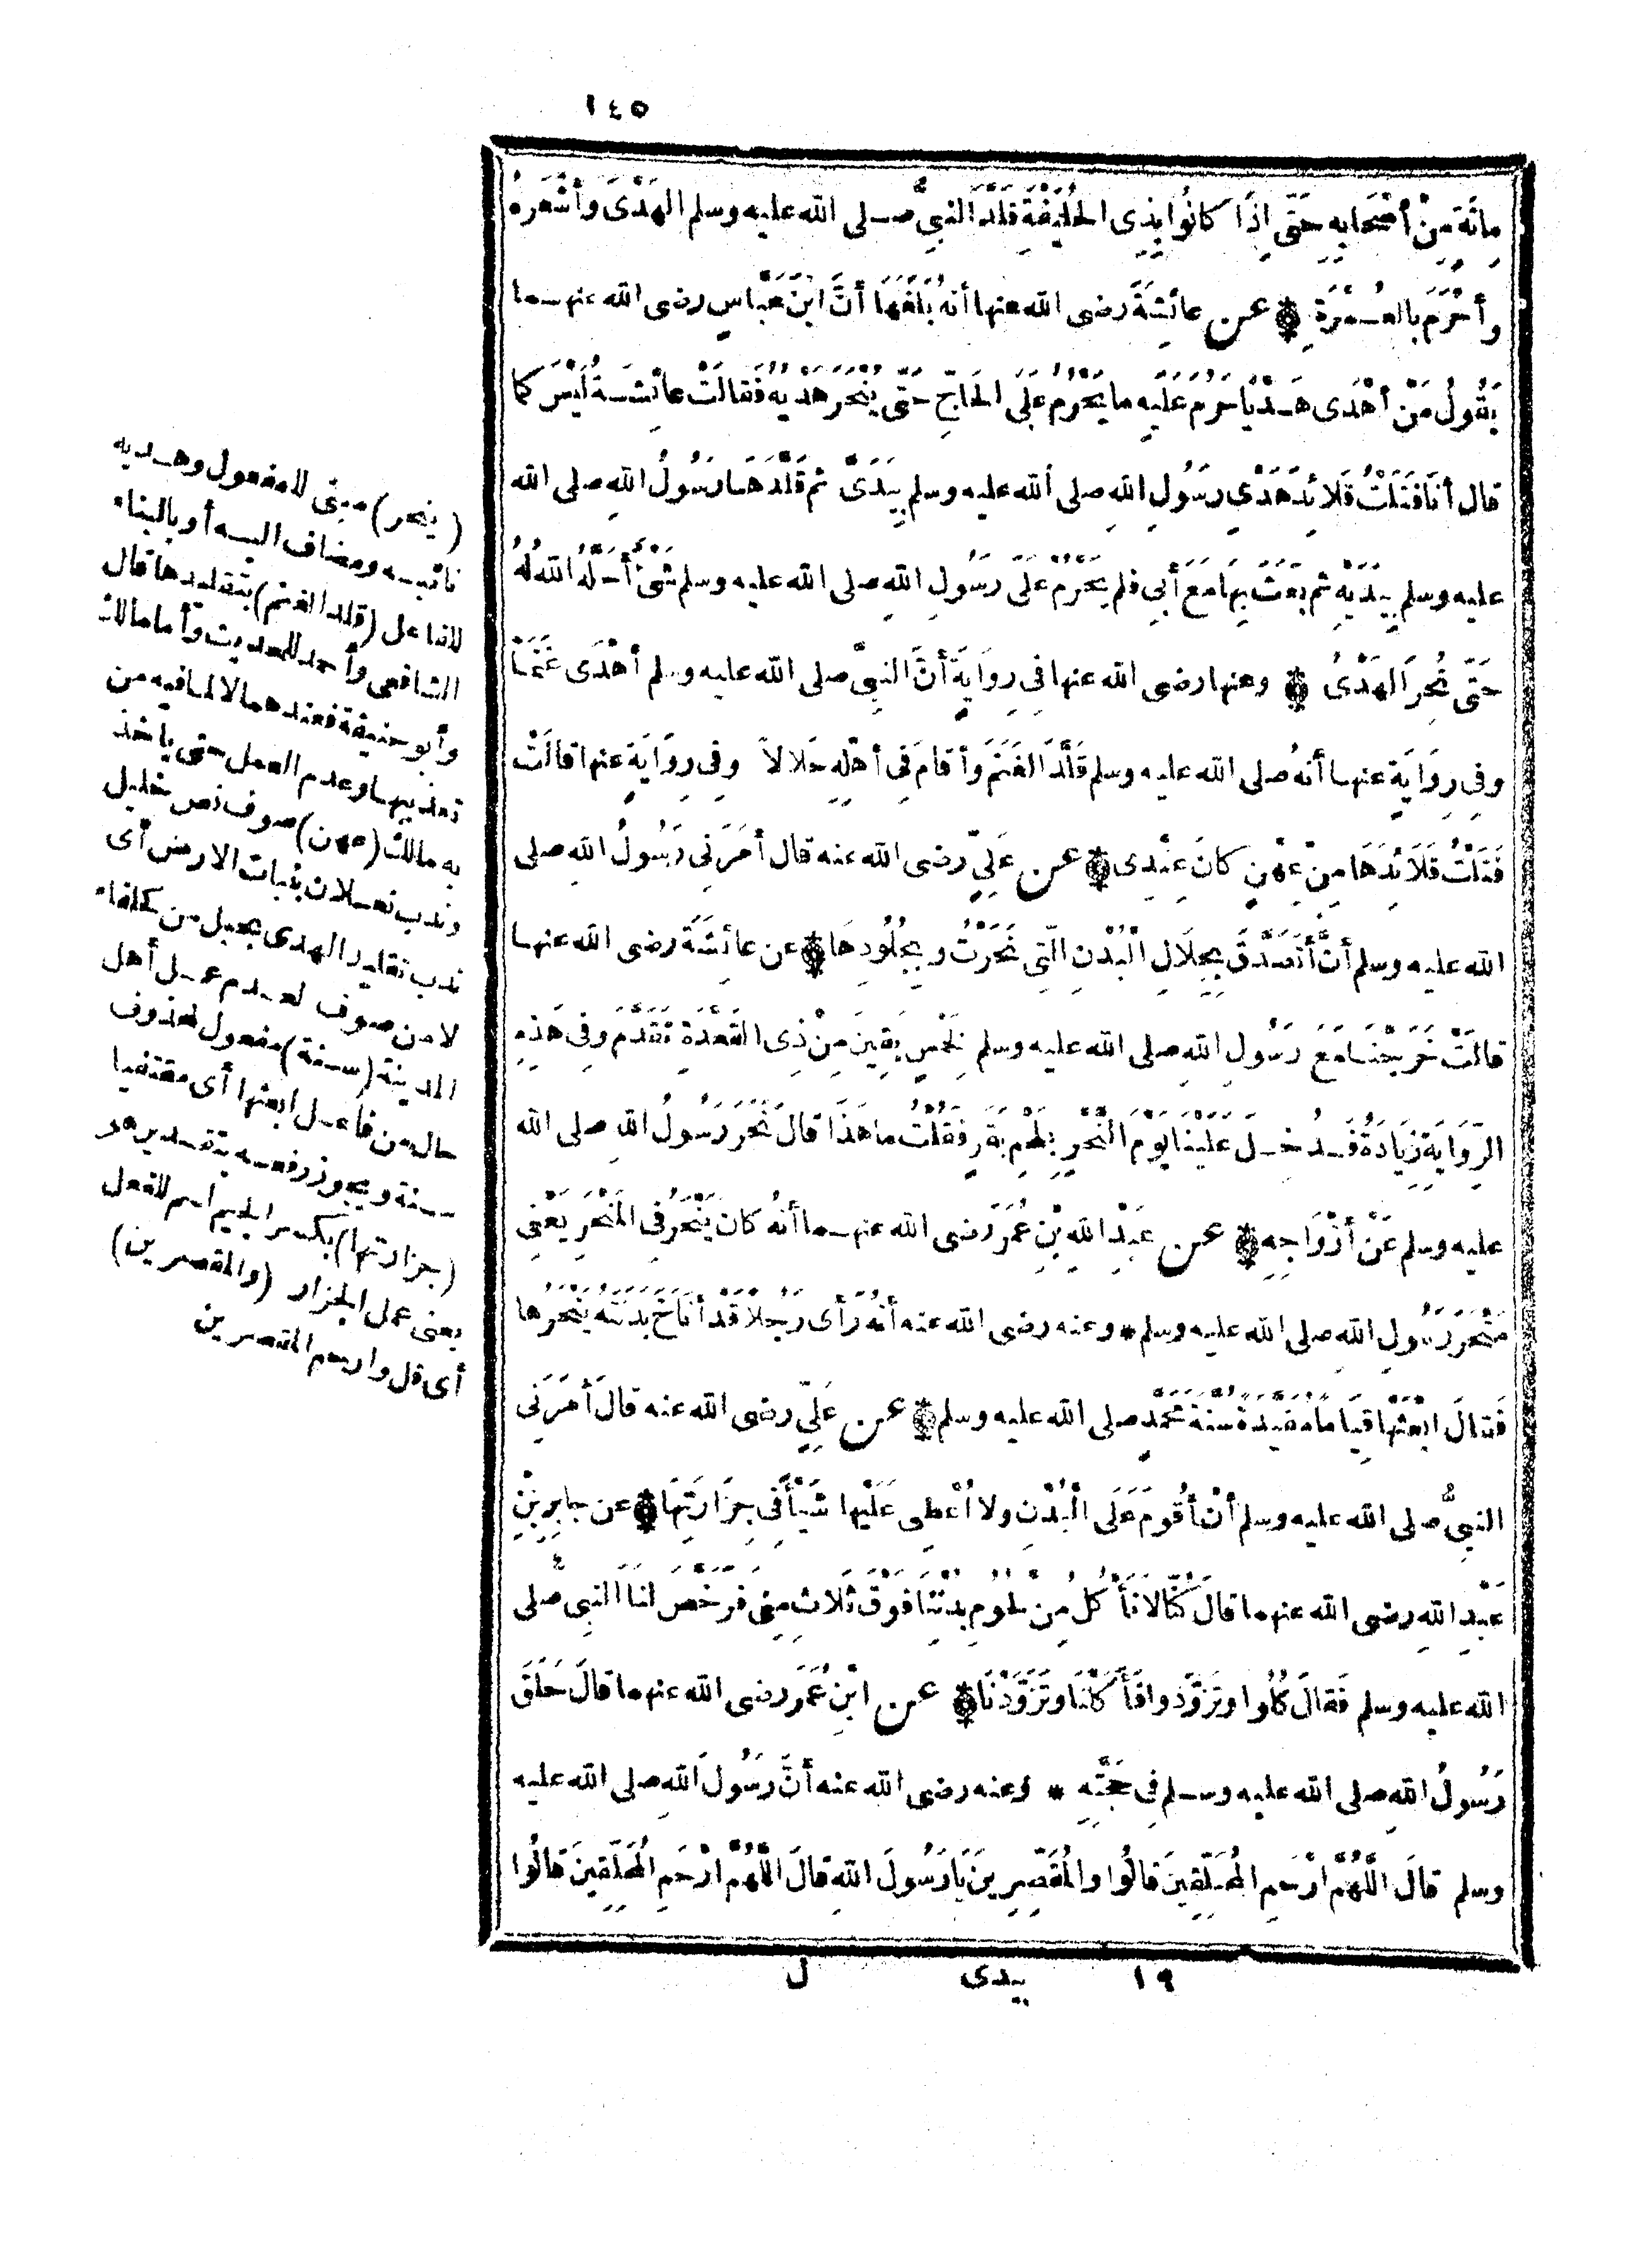 ١٤٥
مِائَةٍ مِنْ أَصْحَابِهِ حَتَّى إِذَا كَانُوا بِذِى الحُلَيْفَةِ قَلَّدَ النبىُّ صلى الله عليه وسلم الهَدْىَ وَأَشْعَرَهُ
وأَحْرَمَ بالعُمْرَةِ ۞ عن عائِشَةَ رضى الله عنها أنهُ بَلَغَهَا أَنَّ ابْنَ عَبَّاسٍ رضى الله عنهما
يَقُولُ مَنْ أَهْدَى هَدْيًا حَرُمَ عَلَيْهِ ما يَحْرُمُ عَلَى الحَاجِّ حَتَّى يُنْحَرَ هَدْيُهُ فَقَالَتْ عائِشَةُ لَيْسَ كما
قال أنَا فَتَلْتُ قَلَائِدَ هَدْىِ رسَولِ اللهِ صلى الله عليه وسلم بِيَدَىَّ ثم قَلَّدَهَا رَسُولُ اللهِ صلى الله
عليه وسلم بِيَدَيْهِ ثم بَعَثَ بِهَا مَعَ أَبِى فلم يَحْرُمْ عَلَى رَسُولِ اللهِ صلى الله عليه وسلم شَىْءٌ أَحَلَّهُ اللهُ لَهُ
حَتَّى نُحِرَ الهَدْىُ ۞ وعنها رضى الله عنها فِى رِوَايَةٍ أَنَّ النبىَّ صلى الله عليه وسلم أَهْدَى غَنَمًا
وفِى رِوَايَةٍ عنها أنهُ صلى الله عليه وسلم قَلَّدَ الغَنَمَ وَأَقامَ فِى أَهْلِهِ حَلَالاً وفِى رِوَايَةٍ عنها قالَتْ
فَتَلْتُ قَلَائِدَهَا مِنْ عِهْنٍ كانَ عِنْدِى ۞ عن عَلِىٍّ رضى الله عنه قال أَمَرَنِى رَسُولُ اللهِ صلى
الله عليه وسلم أَنْ أَتَصَدَّقَ بِجِلَالِ الْبُدْنِ الَّتِى نَحَرْتُ وبِجُلُودِهَا ۞ عن عائِشَةَ رضى الله عنها
قالَتْ خَرَجْنَا مَعَ رَسُولِ اللهِ صلى الله عليه وسلم لِخَمْسٍ بَقِينَ مِنْ ذِى القَعْدَةِ تَقَدَّمَ وفِى هَذِهِ
الرِّوَايَةِ زِيَادَةٌ فَدُخِلَ عَلَيْنَا يَوْمَ النَّحْرِ بِلَحْمِ بَقَرٍ فَقُلْتُ ما هَذَا قالَ نَحَرَ رَسُولُ اللهِ صلى الله
عليه وسلم عَنْ أَزْوَاجِهِ ۞ عن عَبْدِ اللهِ بْنِ عُمَرَ رضى الله عنهما أنهُ كانَ يَنْحَرُ فِى المَنْحَرِ يَعْنِى
مَنْحَرَ رَسُولِ اللهِ صلى الله عليه وسلم * وعنه رضى الله عنه أنهُ رَأَى رَجُلاً قَدْ أَنَاخَ بَدَنَتَهُ يَنْحَرُها
فَقالَ ابْعَثْهَا قِيَامًا مُقَيَّدَةً سُنَّةَ مُحَمَّدٍ صلى الله عليه وسلم ۞ عن عَلِىٍّ رضى الله عنه قالَ أَمَرَنِى
النبىُّ صلى الله عليه وسلم أنْ أَقُومَ عَلَى الْبُدْنِ ولا أُعْطِى عَلَيْها شَيْأً فِى جِزَارَتِهَا ۞ عن جابِرِ بْنِ
عَبْدِ اللهِ رضى الله عنهما قالَ كُنَّا لا نَأْكُلُ مِنْ لُحُومِ بُدْنِنَا فَوْقَ ثَلَاثِ مِنًى فَرَخَّصَ لَنَا النبىُّ صلى
الله عليه وسلم فَقالَ كُلُوا وتَزَوَّدُوا فَأَكَلْنَا وتَزَوَّدْنَا ۞ عن ابْنِ عُمَرَ رضى الله عنهما قالَ حَلَقَ
رَسُولُ اللهِ صلى الله عليه وسلم فِى حَجَّتِهِ * وعنه رضى الله عنه أَنَّ رَسُولَ اللهِ صلى الله عليه
وسلم قالَ اللَّهُمَّ ارْحَمِ المُحَلِّقِينَ قالُوا والمُقَصِّرِينَ يَا رَسُولَ اللهِ قالَ اللَّهُمَّ ارْحَمِ المُحَلِّقِينَ قالُوا
(ينحر) مبنى للمفعول وهديه
نائبه ومضاف اليه أو بالبناء
للفاعل (قلد الغنم) بتقليدها قال
الشافعى وأحمد للحديث وأما مالك
وأبو حنيفة فعندهما لا لما فيه من
تعذيبها وعدم العمل حتى يأخذ
به مالك (عهن) صوف نص خليل
وندب نعلان بنبات الارض أى
ندب تقليد الهدى بحبل من كلفاء
لا من صوف لعدم عمل أهل
المدينة (سنة) مفعول لمحذوف
حال من فاعل ابعثها أى مقتفيا
سنة ويجوز رفعه بتقدير هو
(جزارتها) بكسر الجيم اسم للفعل
يعنى عمل الجزار (والمقصرين)
أى قل وارحم المقصرين
١٩ بيدى ل